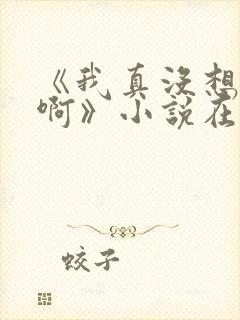 《我真没想
啊》小说在
蛟子